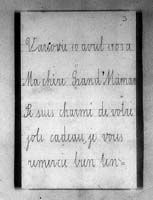 Varsovie 10 avril
Ma chère Grand' Maman
Je suis charmé de votre
joli cadeau, je vous
remercie bien ten-